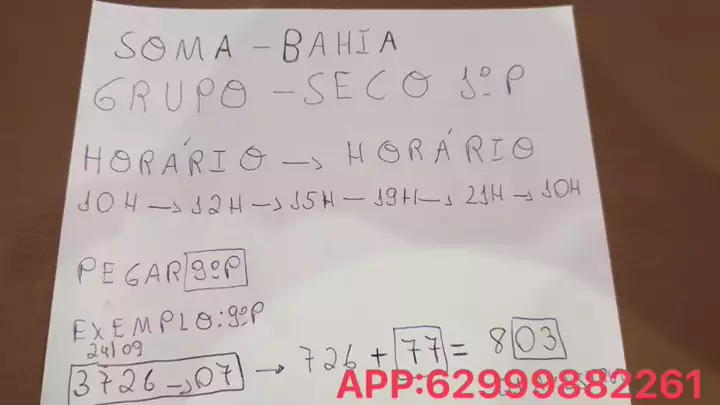 SOMA - BAHIA
GRUPO - SECO 1º P
HORÁRIO → HORÁRIO
10H → 12H → 15H - 19H → 21H → 10H
PEGAR 9ºP
EXEMPLO: 9ºP
24/09
3726 → 07 → 726 + 77 = 803
APP:62999882261